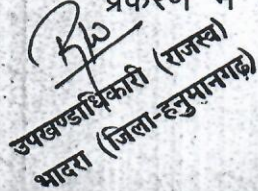 प्रकरण में
उपखण्डाधिकारी (राजस्व)
भादरा (जिला-हनुमानगढ़)